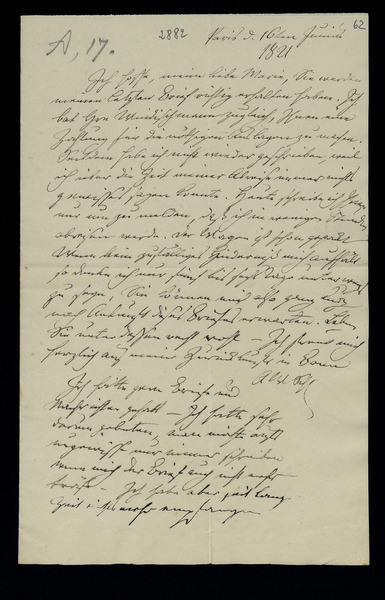 A, 17.
2882
62
Paris d. 16ten Junius
1821
Ich hoffe, meine liebe Marie, Sie werden
meinen letzten Brief richtig erhalten haben. Ich
bat Hrn Windischmann zugleich, Ihnen eine
Zahlung für die nöthigen Auslagen zu machen.
Seitdem habe ich nicht wieder geschrieben, weil
ich über die Zeit meiner Abreise immer nichts
gewisses sagen konnte. Heute schreibe ich Ihnen
nur um zu melden, daß ich in wenigen Stunden
abreisen werde. Der Wagen ist schon gepackt.
Wenn kein zufälliges Hinderniß mich aufhält
so denke ich nur fünf bis sechs Tage unterwegs
zu seyn, Sie können mich also ganz kurz
nach Ankunft dieses Briefes erwarten. Leben
Sie unterdessen recht wohl – Ich freue mich
herzlich auf meine Zurückkunft in Bonn
Ich hätte gern Briefe und
Nachrichten gehabt – Ich hatte sehr
darum gebeten, man möchte aufs
ungewisse nur immer schreiben
wenn mich der Brief auch nicht mehr
träfe – Ich habe aber seit lang
Zeit nichts mehr empfangen